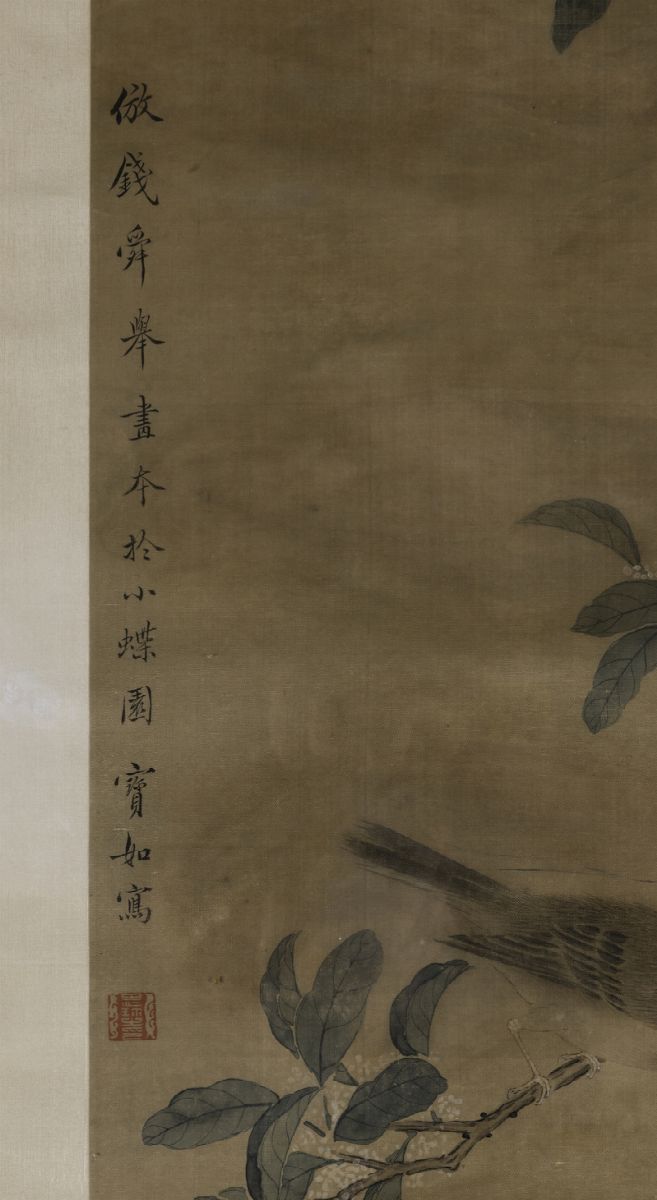 倣錢舜舉畫本於小蝶園寶如寫